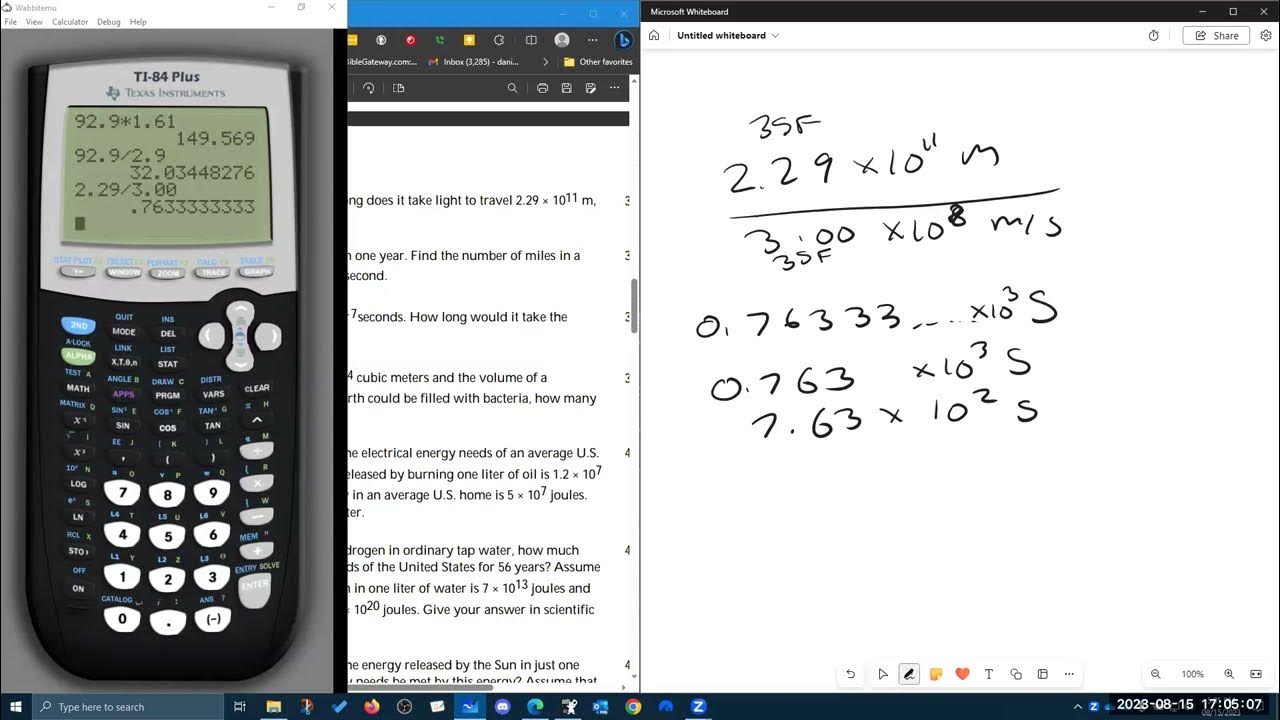 Wabbitemu
File View Calculator Debug Help
TI-84 Plus
TEXAS INSTRUMENTS
92.9*1.61
149.569
92.9/2.9
32.03448276
2.29/3.00
.7633333333
STAT PLOT F1 TBLSET F2 FORMAT F3 CALC F4 TABLE F5
Y= WINDOW ZOOM TRACE GRAPH
QUIT INS
2ND MODE DEL
A-LOCK LINK LIST
ALPHA X,T,Θ,n STAT
TEST A ANGLE B DRAW C DISTR
MATH APPS PRGM VARS CLEAR
MATRIX D SIN⁻¹ E COS⁻¹ F TAN⁻¹ G π H
SIN COS TAN ^
√ I EE J { K } L e M
x² , ( ) ÷
10ˣ N u O v P w Q [ R
LOG 7 8 9 ×
eˣ S L4 T L5 U L6 V ] W
LN 4 5 6 −
RCL X L1 Y L2 Z L3 θ MEM "
STO 1 2 3 +
OFF CATALOG i : ANS ? ENTRY SOLVE
ON 0 . (-) ENTER
BibleGateway.com:... Inbox (3,285) - dani... Other favorites
ng does it take light to travel 2.29 × 10¹¹ m, 3
n one year. Find the number of miles in a 3
second.
-7 seconds. How long would it take the 3
4 cubic meters and the volume of a 3
rth could be filled with bacteria, how many
he electrical energy needs of an average U.S. 4
eleased by burning one liter of oil is 1.2 × 10⁷
y in an average U.S. home is 5 × 10⁷ joules.
ter.
drogen in ordinary tap water, how much 4
ds of the United States for 56 years? Assume
n in one liter of water is 7 × 10¹³ joules and
× 10²⁰ joules. Give your answer in scientific
he energy released by the Sun in just one 4
y needs be met by this energy? Assume that
Microsoft Whiteboard
Untitled whiteboard Share
3SF
2.29 ×10¹¹ m
3.00 ×10⁸ m/s
3SF
0.76333 ..... ×10³ S
0.763 ×10³ S
7.63 × 10² s
100%
Type here to search
2023-08-15 17:05:07